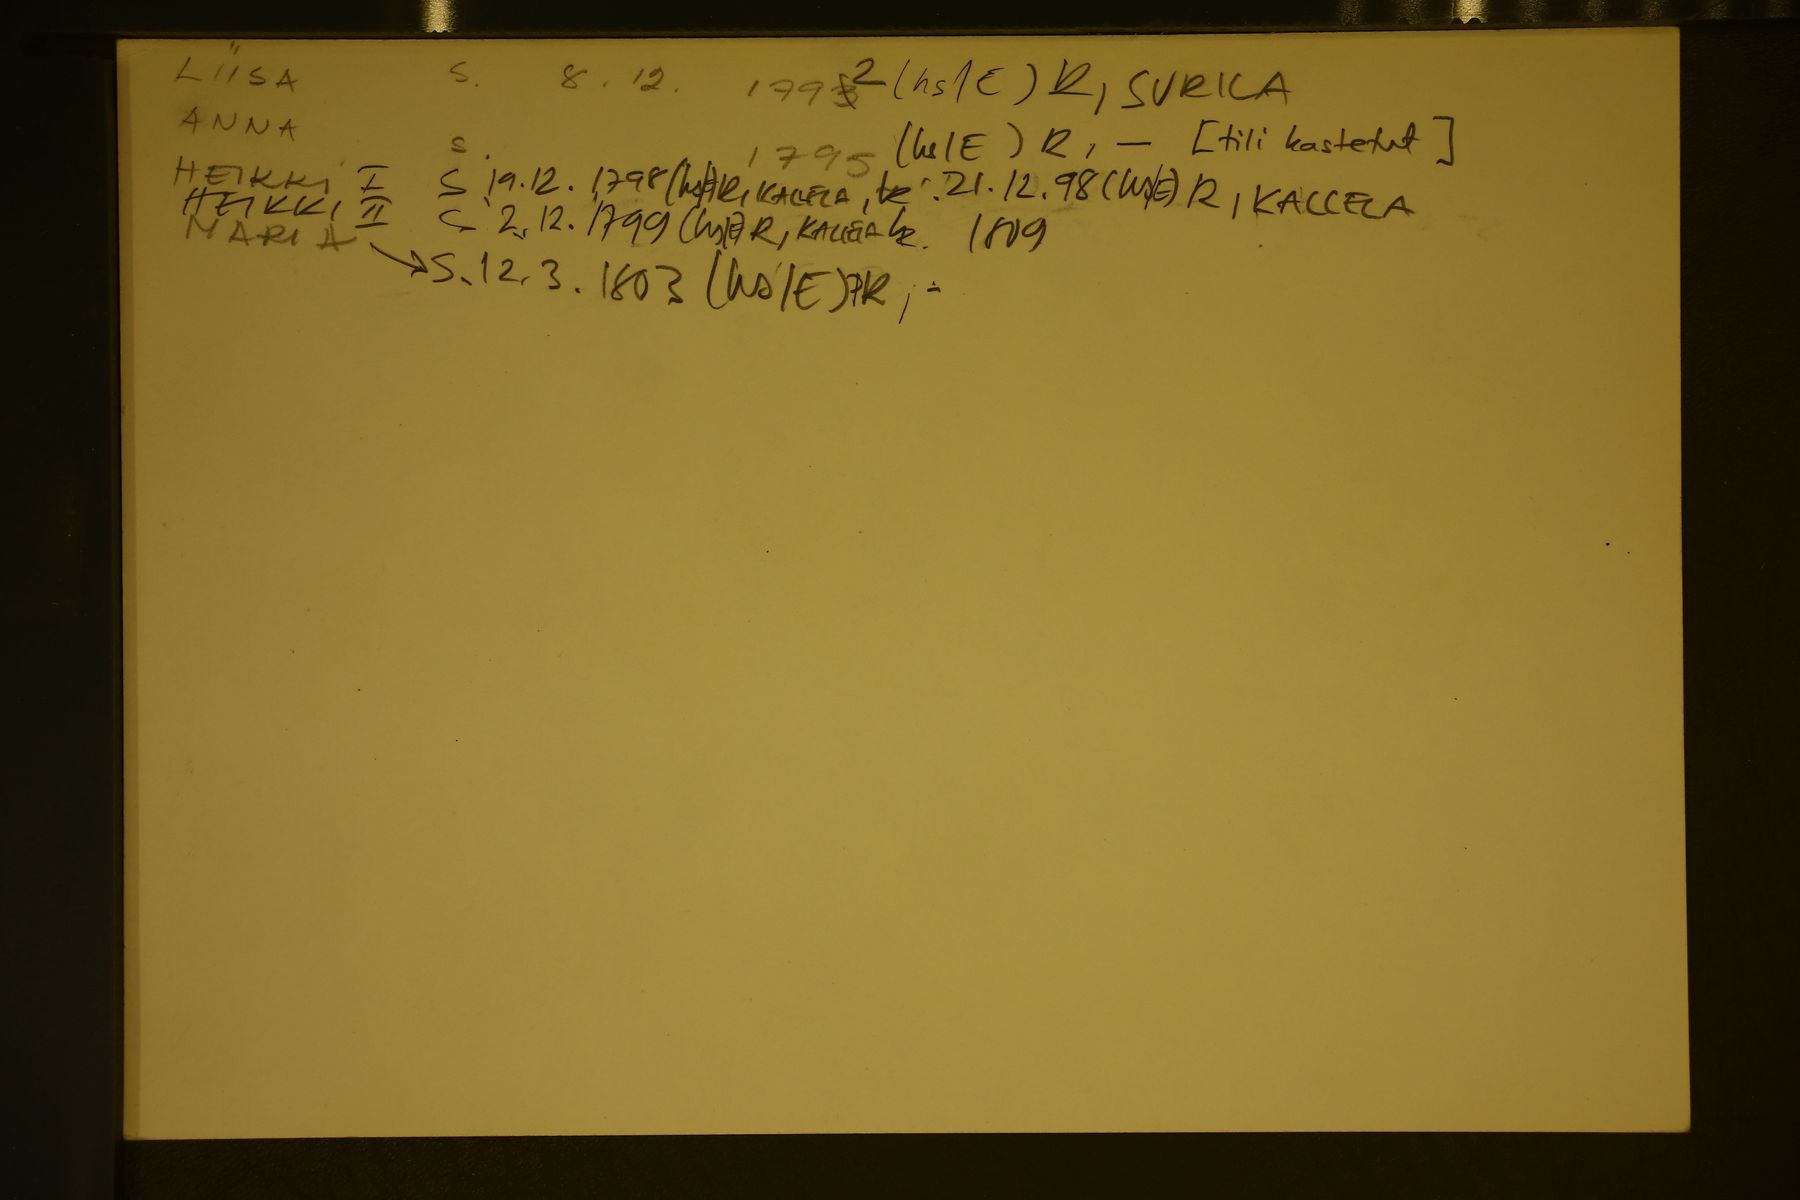 LIISA S. 8.12. 1792 (hs/E) R, SURILA
ANNA S. 1795 (hs/E) R, — [tili kastetut]
HEIKKI I S 19.12.1798 (hs/E) R, KALLELA, k. 21.12.98 (hs/E) R, KALLELA
HEIKKI II S 2.12.1799 (hs/E) R, KALLELA k. 1809
MARIA → S. 12.3.1803 (hs/E) R, -